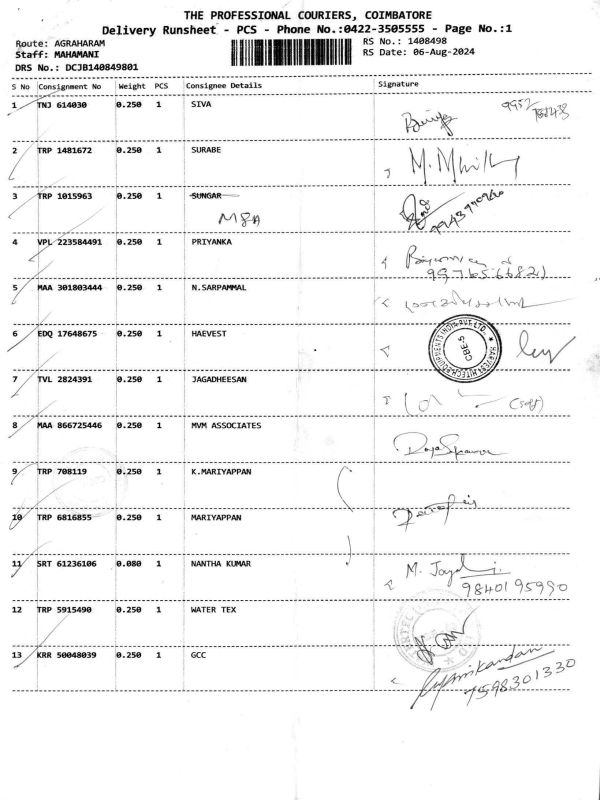 THE PROFESSIONAL COURIERS, COIMBATORE
Delivery Runsheet - PCS - Phone No.:0422-3505555 - Page No.:1
Route: AGRAHARAM
Staff: MAHAMANI
DRS No.: DCJB140849801
RS No.: 1408498
RS Date: 06-Aug-2024
S No Consignment No Weight PCS Consignee Details Signature
1 TNJ 614030 0.250 1 SIVA
2 TRP 1481672 0.250 1 SURABE
3 TRP 1015963 0.250 1 SUNGAR
MSA
4 VPL 223584491 0.250 1 PRIYANKA
5 MAA 301803444 0.250 1 N.SARPAMMAL
6 EDQ 17648675 0.250 1 HAEVEST
7 TVL 2824391 0.250 1 JAGADHEESAN
(self)
8 MAA 866725446 0.250 1 MVM ASSOCIATES
9 TRP 708119 0.250 1 K.MARIYAPPAN
10 TRP 6816855 0.250 1 MARIYAPPAN
11 SRT 61236106 0.080 1 NANTHA KUMAR M.
9840195990
12 TRP 5915490 0.250 1 WATER TEX
13 KRR 50048039 0.250 1 GCC
7598301330